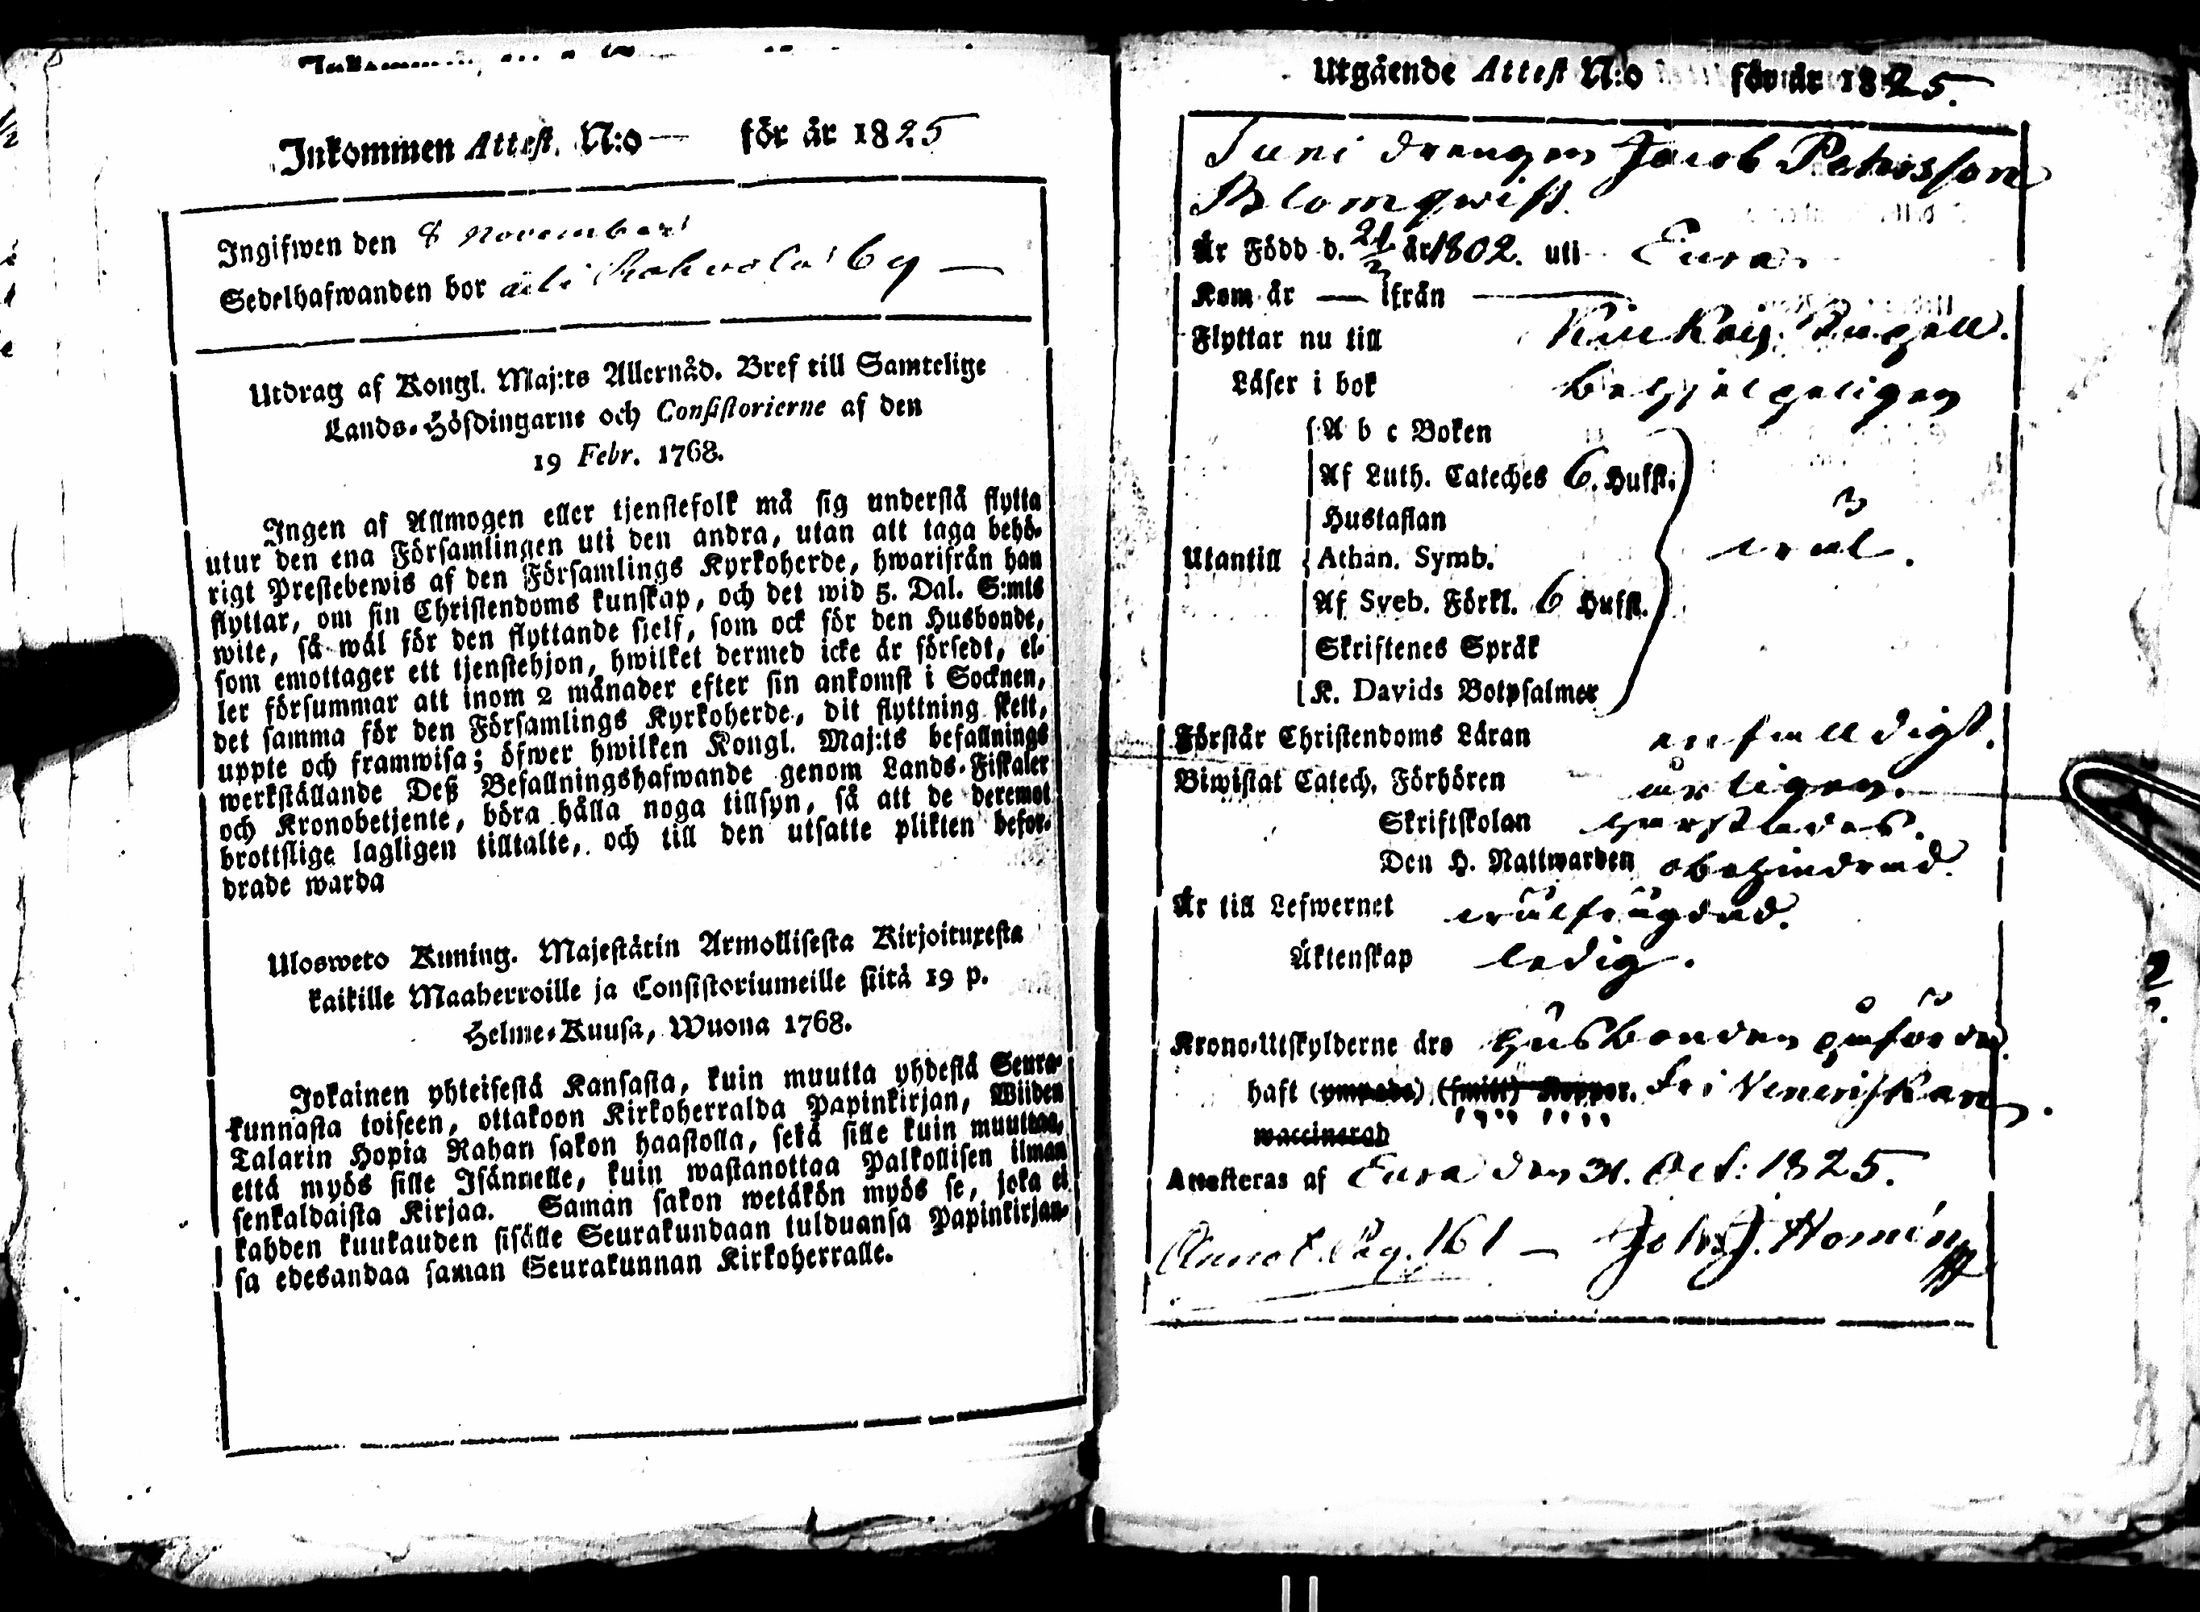 Inkommen Attest. N:o — för år 1825
Ingifwen den 8 November
Sedelhafwanden bor uti by —
Utdrag af Kongl. Maj:ts Allernåd. Bref till Samtelige
Lands-Höfdingarne och Consistorierne af den
19 Febr. 1768.
Ingen af Allmogen eller tjenstefolk må sig understå flytta
utur den ena Församlingen uti den andra, utan att taga behö-
rigt Prestebewis af den Församlings Kyrkoherde, hwarifrån han
flyttar, om sin Christendoms kunskap, och det wid 5. Dal. S:mts
wite, så wäl för den flyttande sielf, som ock för den Husbonde,
som emottager ett tjenstehjon, hwilket dermed icke är försedt, el-
ler försummar att inom 2 månader efter sin ankomst i Socknen,
det samma för den Församlings Kyrkoherde, dit flyttning skett,
uppte och framwisa; öfwer hwilken Kongl. Maj:ts befallnings
werkställande Deß Befallningshafwande genom Lands-Fiskaler
och Kronobetjente, böra hålla noga tillsyn, så att de deremot
brottslige lagligen tilltalte, och till den utsatte plikten befor-
drade warda
Ulosweto Kuning. Majestätin Armollisesta Kirjoituxesta
kaikille Maaherroille ja Consistoriumeille siitä 19 p.
Helme-Kuusa, Wuona 1768.
Jokainen yhteisestä Kansasta, kuin muutta yhdestä Seura-
kunnasta toiseen, ottakoon Kirkoherralda Papinkirjan, Wiiden
Talarin Hopia Rahan sakon haastolla, sekä sille kuin muuttaa,
että myös sille Isännelle, kuin wastanottaa Palkollisen ilman
senkaldaista Kirjaa. Saman sakon wetäkön myös se, joka ei
kahden kuukauden sisälle Seurakundaan tulduansa Papinkirjan-
sa edesandaa saman Seurakunnan Kirkoherralle.
Utgående Attest N:o för år 1825.
drengen Jacob Petersson
Blomqwist.
Är Född d. 21/3 år 1802. uti Eura
Kom år — ifrån —
Flyttar nu till
Läser i bok behjelpeligen
A b c Boken
Af Luth. Cateches 6. Hufst.
Hustaflan
Utantill Athan. Symb. wäl.
Af Sveb. Förkl. 6 Hufst.
Skriftenes Språk
K. Davids Botpsalmer
Förstår Christendoms Läran enfalldigt.
Biwistat Catech. Förhören årligen.
Skriftskolan
Den H. Nattwarden obehindrad.
Är till Lefwernet wälfrägdad.
Äktenskap ledig.
Krono-Utskylderne äro husbonden påförde
haft (ympade) (smitt) Koppor. Fri Venerisk
waccinerad
Attesteras af Eura den 31. Oct: 1825.
Annot. Pag. 161 — Joh. J. Homén